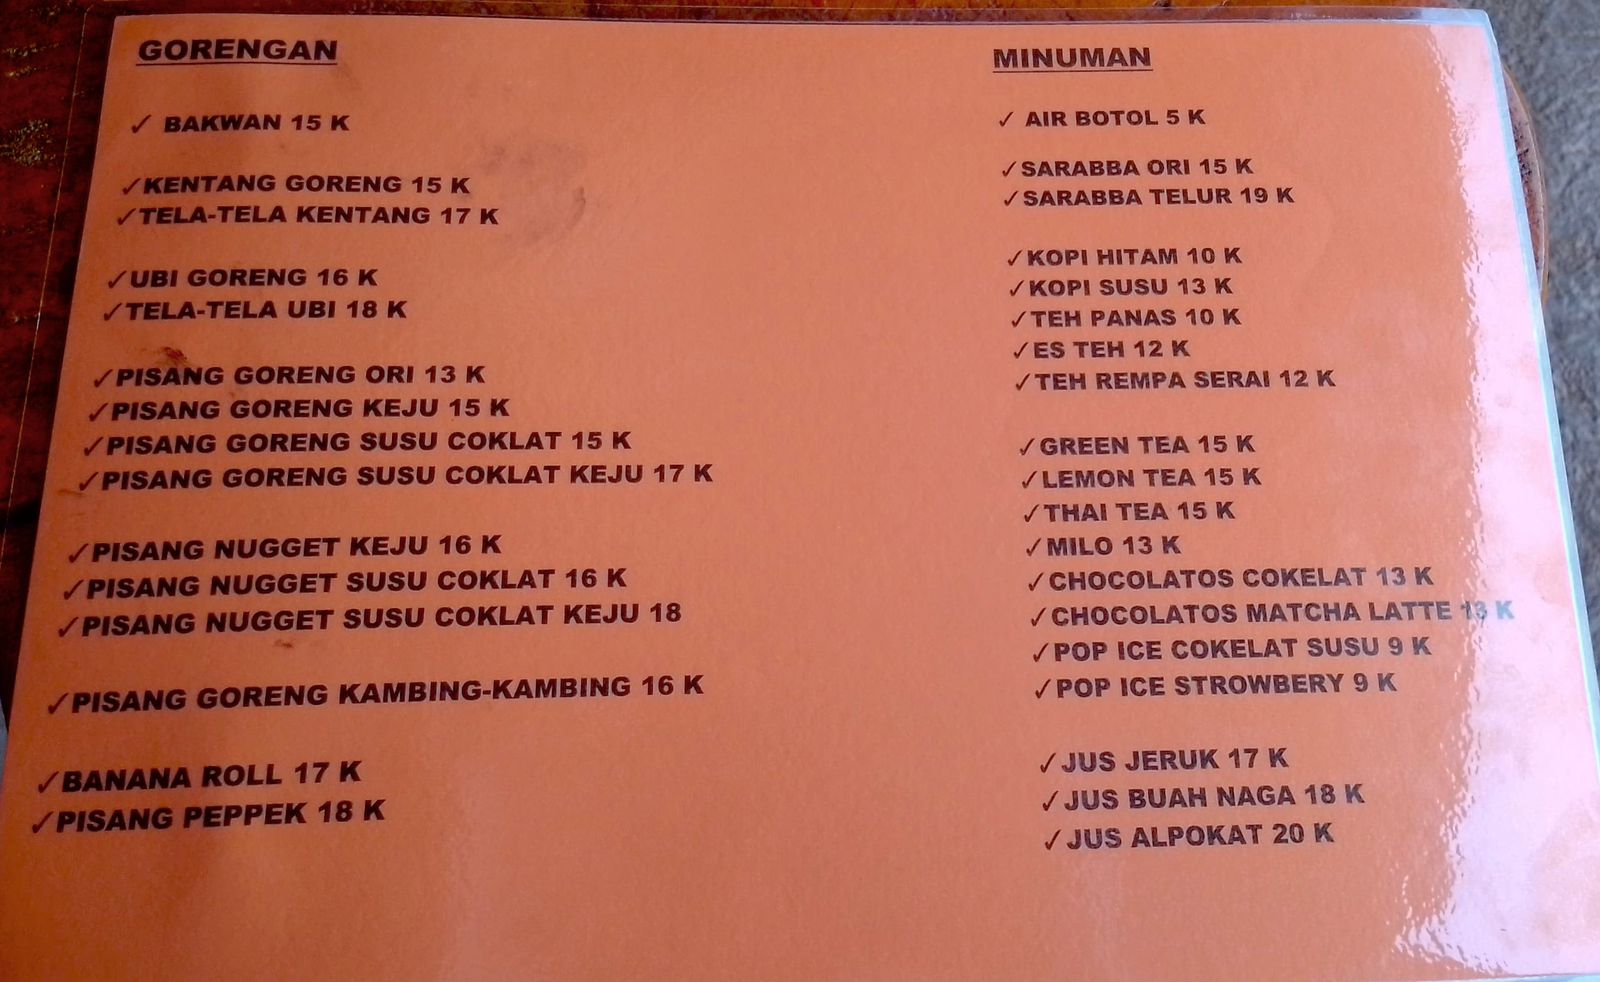 GORENGAN
✓ BAKWAN 15 K
✓KENTANG GORENG 15 K
✓TELA-TELA KENTANG 17 K
✓UBI GORENG 16 K
✓TELA-TELA UBI 18 K
✓PISANG GORENG ORI 13 K
✓PISANG GORENG KEJU 15 K
✓PISANG GORENG SUSU COKLAT 15 K
✓PISANG GORENG SUSU COKLAT KEJU 17 K
✓PISANG NUGGET KEJU 16 K
✓PISANG NUGGET SUSU COKLAT 16 K
✓PISANG NUGGET SUSU COKLAT KEJU 18
✓PISANG GORENG KAMBING-KAMBING 16 K
✓BANANA ROLL 17 K
✓PISANG PEPPEK 18 K
MINUMAN
✓ AIR BOTOL 5 K
✓SARABBA ORI 15 K
✓SARABBA TELUR 19 K
✓KOPI HITAM 10 K
✓KOPI SUSU 13 K
✓TEH PANAS 10 K
✓ES TEH 12 K
✓TEH REMPA SERAI 12 K
✓GREEN TEA 15 K
✓LEMON TEA 15 K
✓THAI TEA 15 K
✓MILO 13 K
✓CHOCOLATOS COKELAT 13 K
✓CHOCOLATOS MATCHA LATTE 13 K
✓POP ICE COKELAT SUSU 9 K
✓POP ICE STROWBERY 9 K
✓JUS JERUK 17 K
✓JUS BUAH NAGA 18 K
✓JUS ALPOKAT 20 K